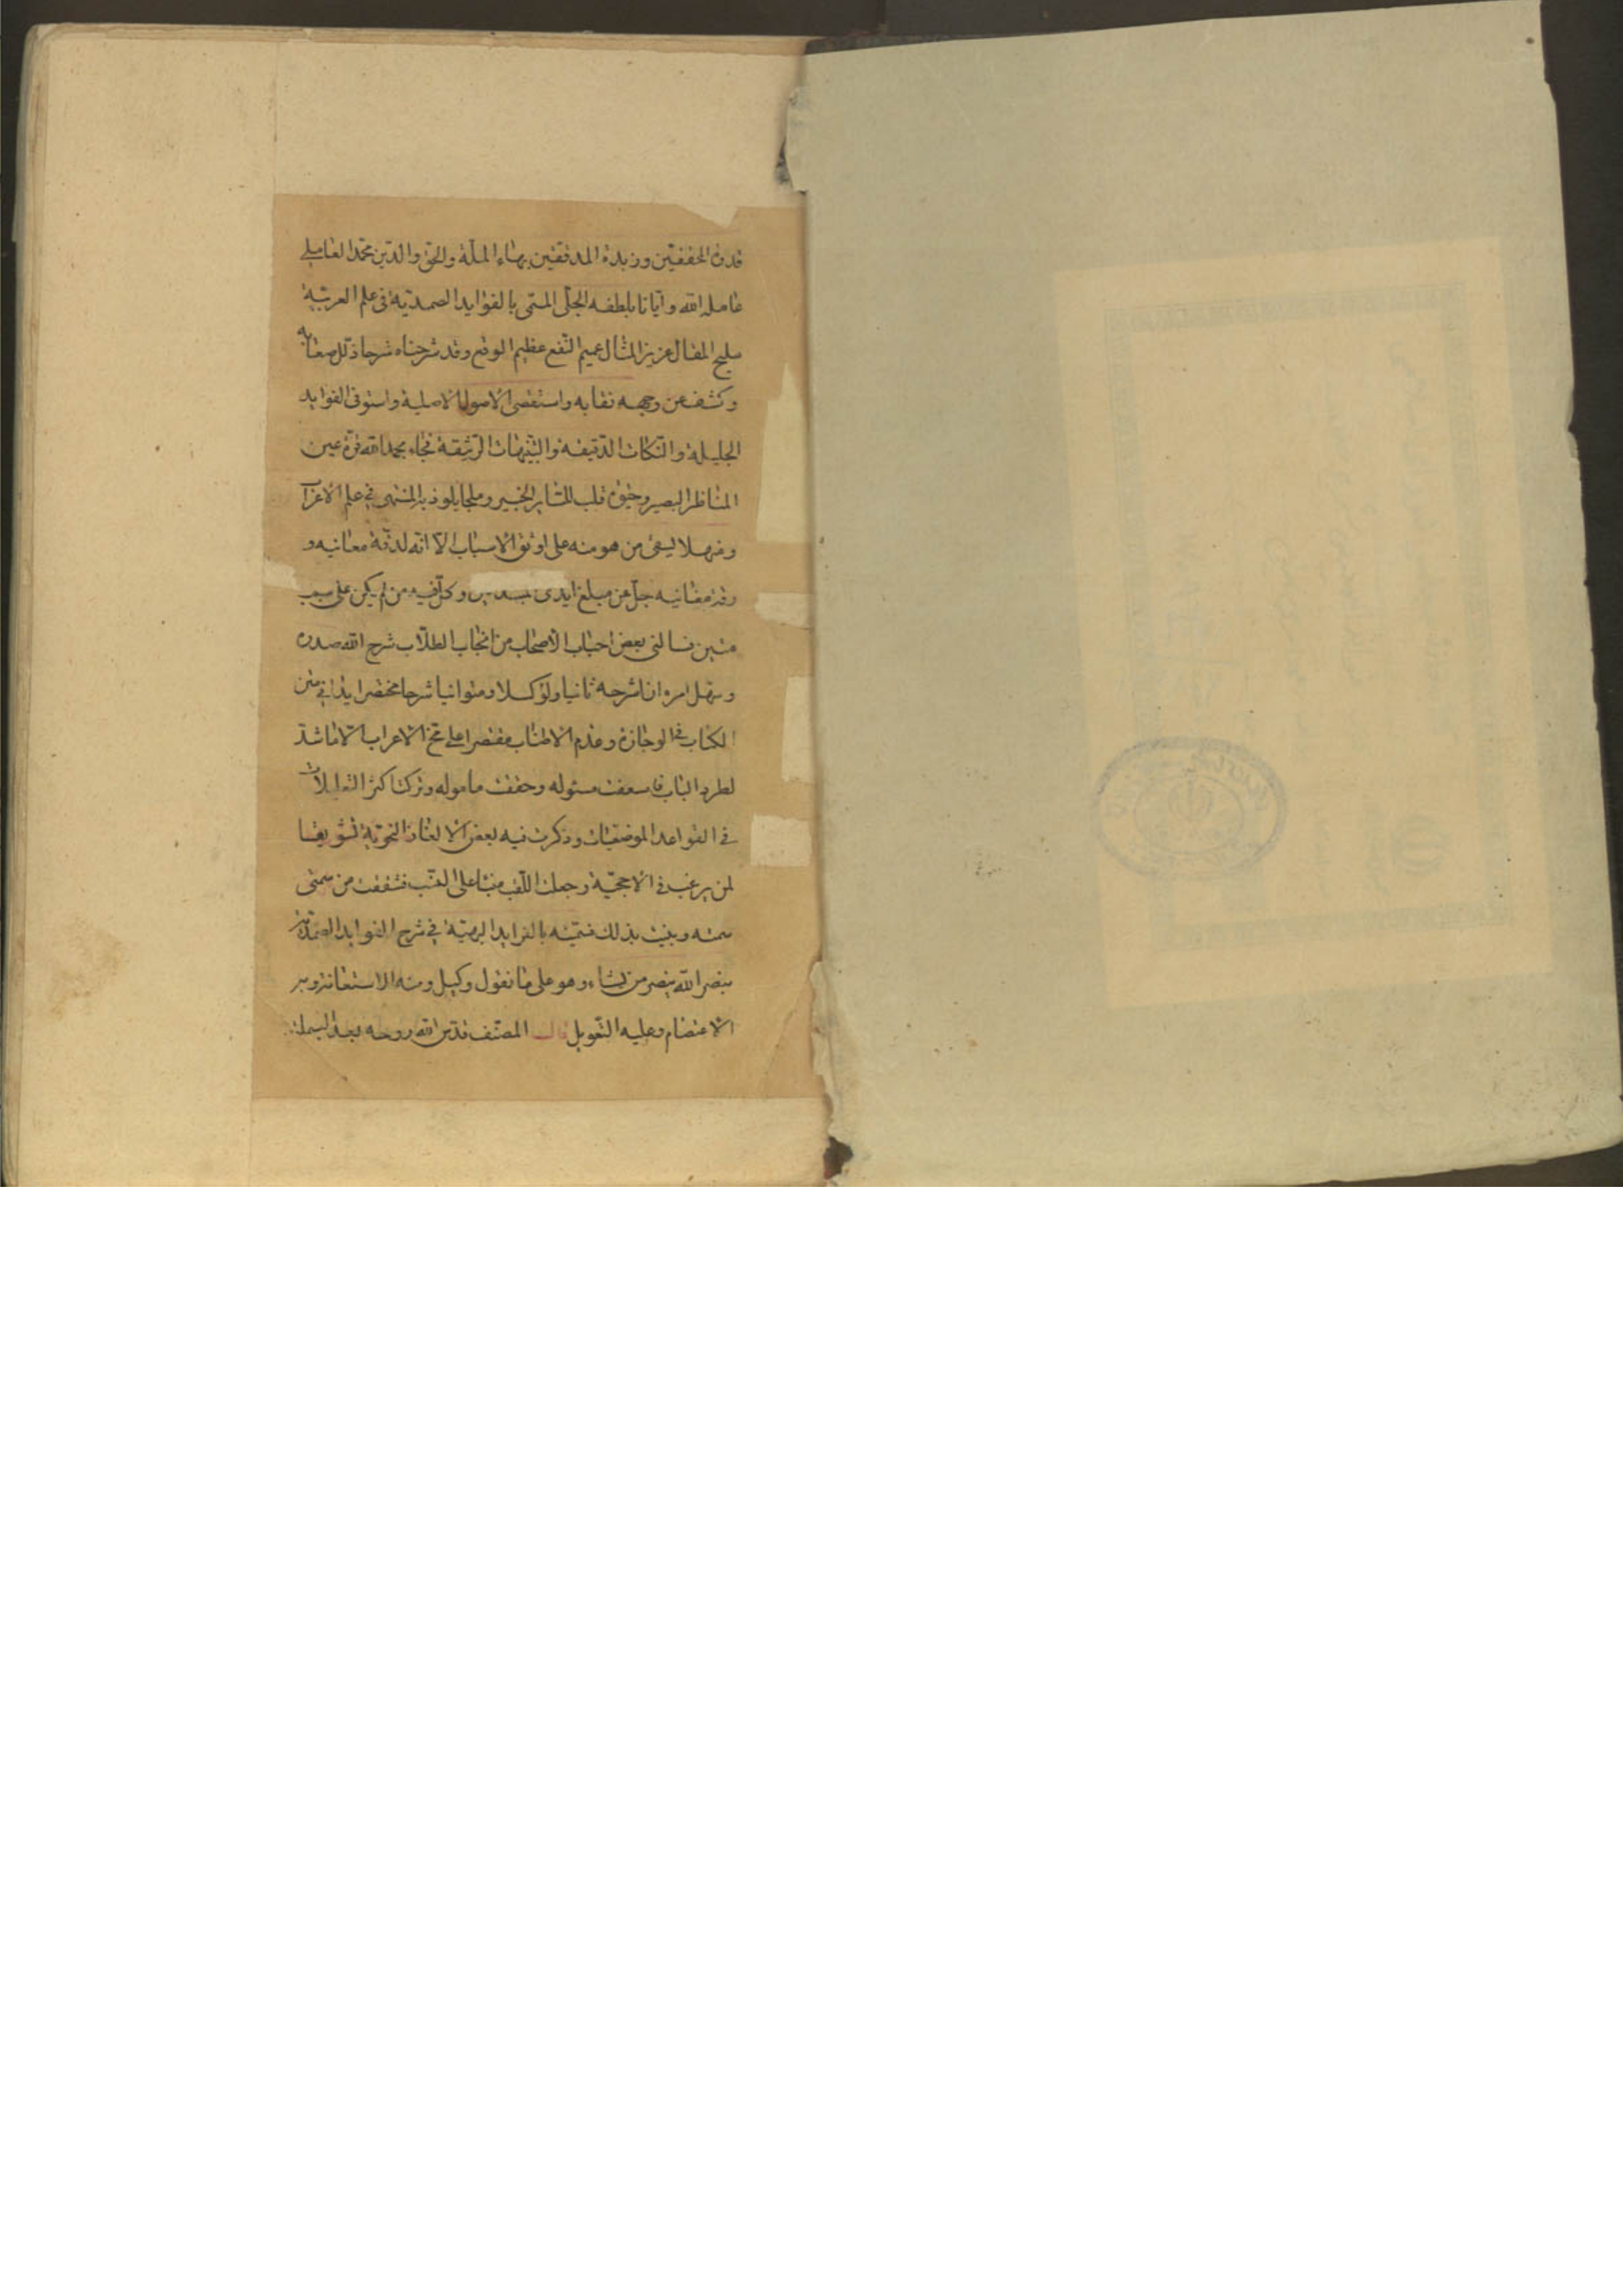 قدوة المحققين وزبدة المدققين بهاء الملة والحق والدين محمد العاملي
عامله الله وايانا بلطفه الجلي المسمى بالفوايد الصمدية في علم العربية
مليح المقال عزيز المثال عميم النفع عظيم الوقع وقد شرحناه شرحا ذلل صعابه
وكشف عن وجهه نقابه واستقصى الاصول الاصلية واستوفى الفوايد
الجليلة والنكات الدقيقة والتنبيهات الرشيقة فجاء بحمد الله قرة عين
المناظر البصير وحيوة قلب الخبير وملجا يلوذ به المنتهى في علم الاعراب
ومنهلا من هو منه على اوثق الاسباب الا انه لدقة معانيه و
جل عن مبلغ ايدى وكل فيه من لم يكن على سبب
متين فسالنى بعض احباب الاصحاب من انجاب الطلاب شرح الله صدره
وسهل امره ان اشرحه ثانيا ولو كسلا ومتوانيا شرحا مختصرا متن
الكتاب في الوجازة وعدم الاطناب مقتصرا على الاعراب الا ما شذ
لطرد الباب فاسعفت مسئوله وحققت ماموله وتركت اكثر التعليلات
في القواعد وذكرت فيه بعض الالغاز النحوية تشويقا
لمن يرغب في الاحجية وجعلت اللقب من سمتى
سمته بذلك بالفرايد البهية في شرح الفوايد الصمدية
بنصر الله ينصر من يشاء وهو على ما نقول وكيل ومنه الاستعانة وبه
الاعتصام وعليه التعويل قال المصنف قدس الله روحه بعد البسملة